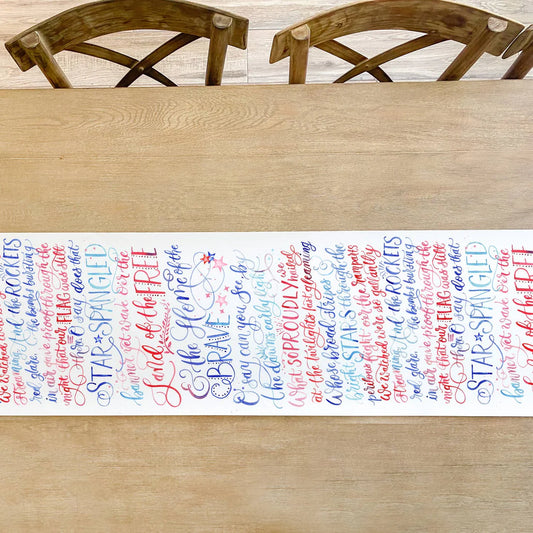 we watched were so gallantly
streaming. And the ROCKETS
red glare. the bombs bursting
in air, gave proof through the
night that our FLAG was still
there. O say does that
STAR SPANGLED
banner yet wave O'er the
Land of the FREE
& the Home of the
BRAVE
O say can you see by
the dawn's early light
What so PROUDLY we hailed
at the twilight's last gleaming
Whose broad stripes &
bright STARS through the
perilous fight o'er the ramparts
we watched were so gallantly
streaming. And the ROCKETS
red glare. the bombs bursting
in air, gave proof through the
night that our FLAG was still
there. O say does that
STAR SPANGLED
banner yet wave O'er the
Land of the FREE